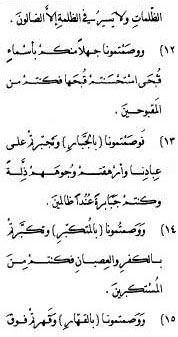 الظلمات ولا يسير في الظلمة إلا الضالون.
(١٢) ووصمتمونا جهلا منكم بأسماء
قبحى استحسنتم قبحها فكنتم من
المقبوحين.
(١٣) فوصمتمونا (بالجبار) وتجبرتم على
عبادنا وأرهقتم وجوههم ذلة
وكنتم جبابرة عندا ظالمين.
(١٤) ووصمتمونا (بالمتكبر) وتكبرتم
بالكفر والعصيان فكنتم من
المستكبرين.
(١٥) ووصمتمونا (بالقهار) وقهرتم فوق